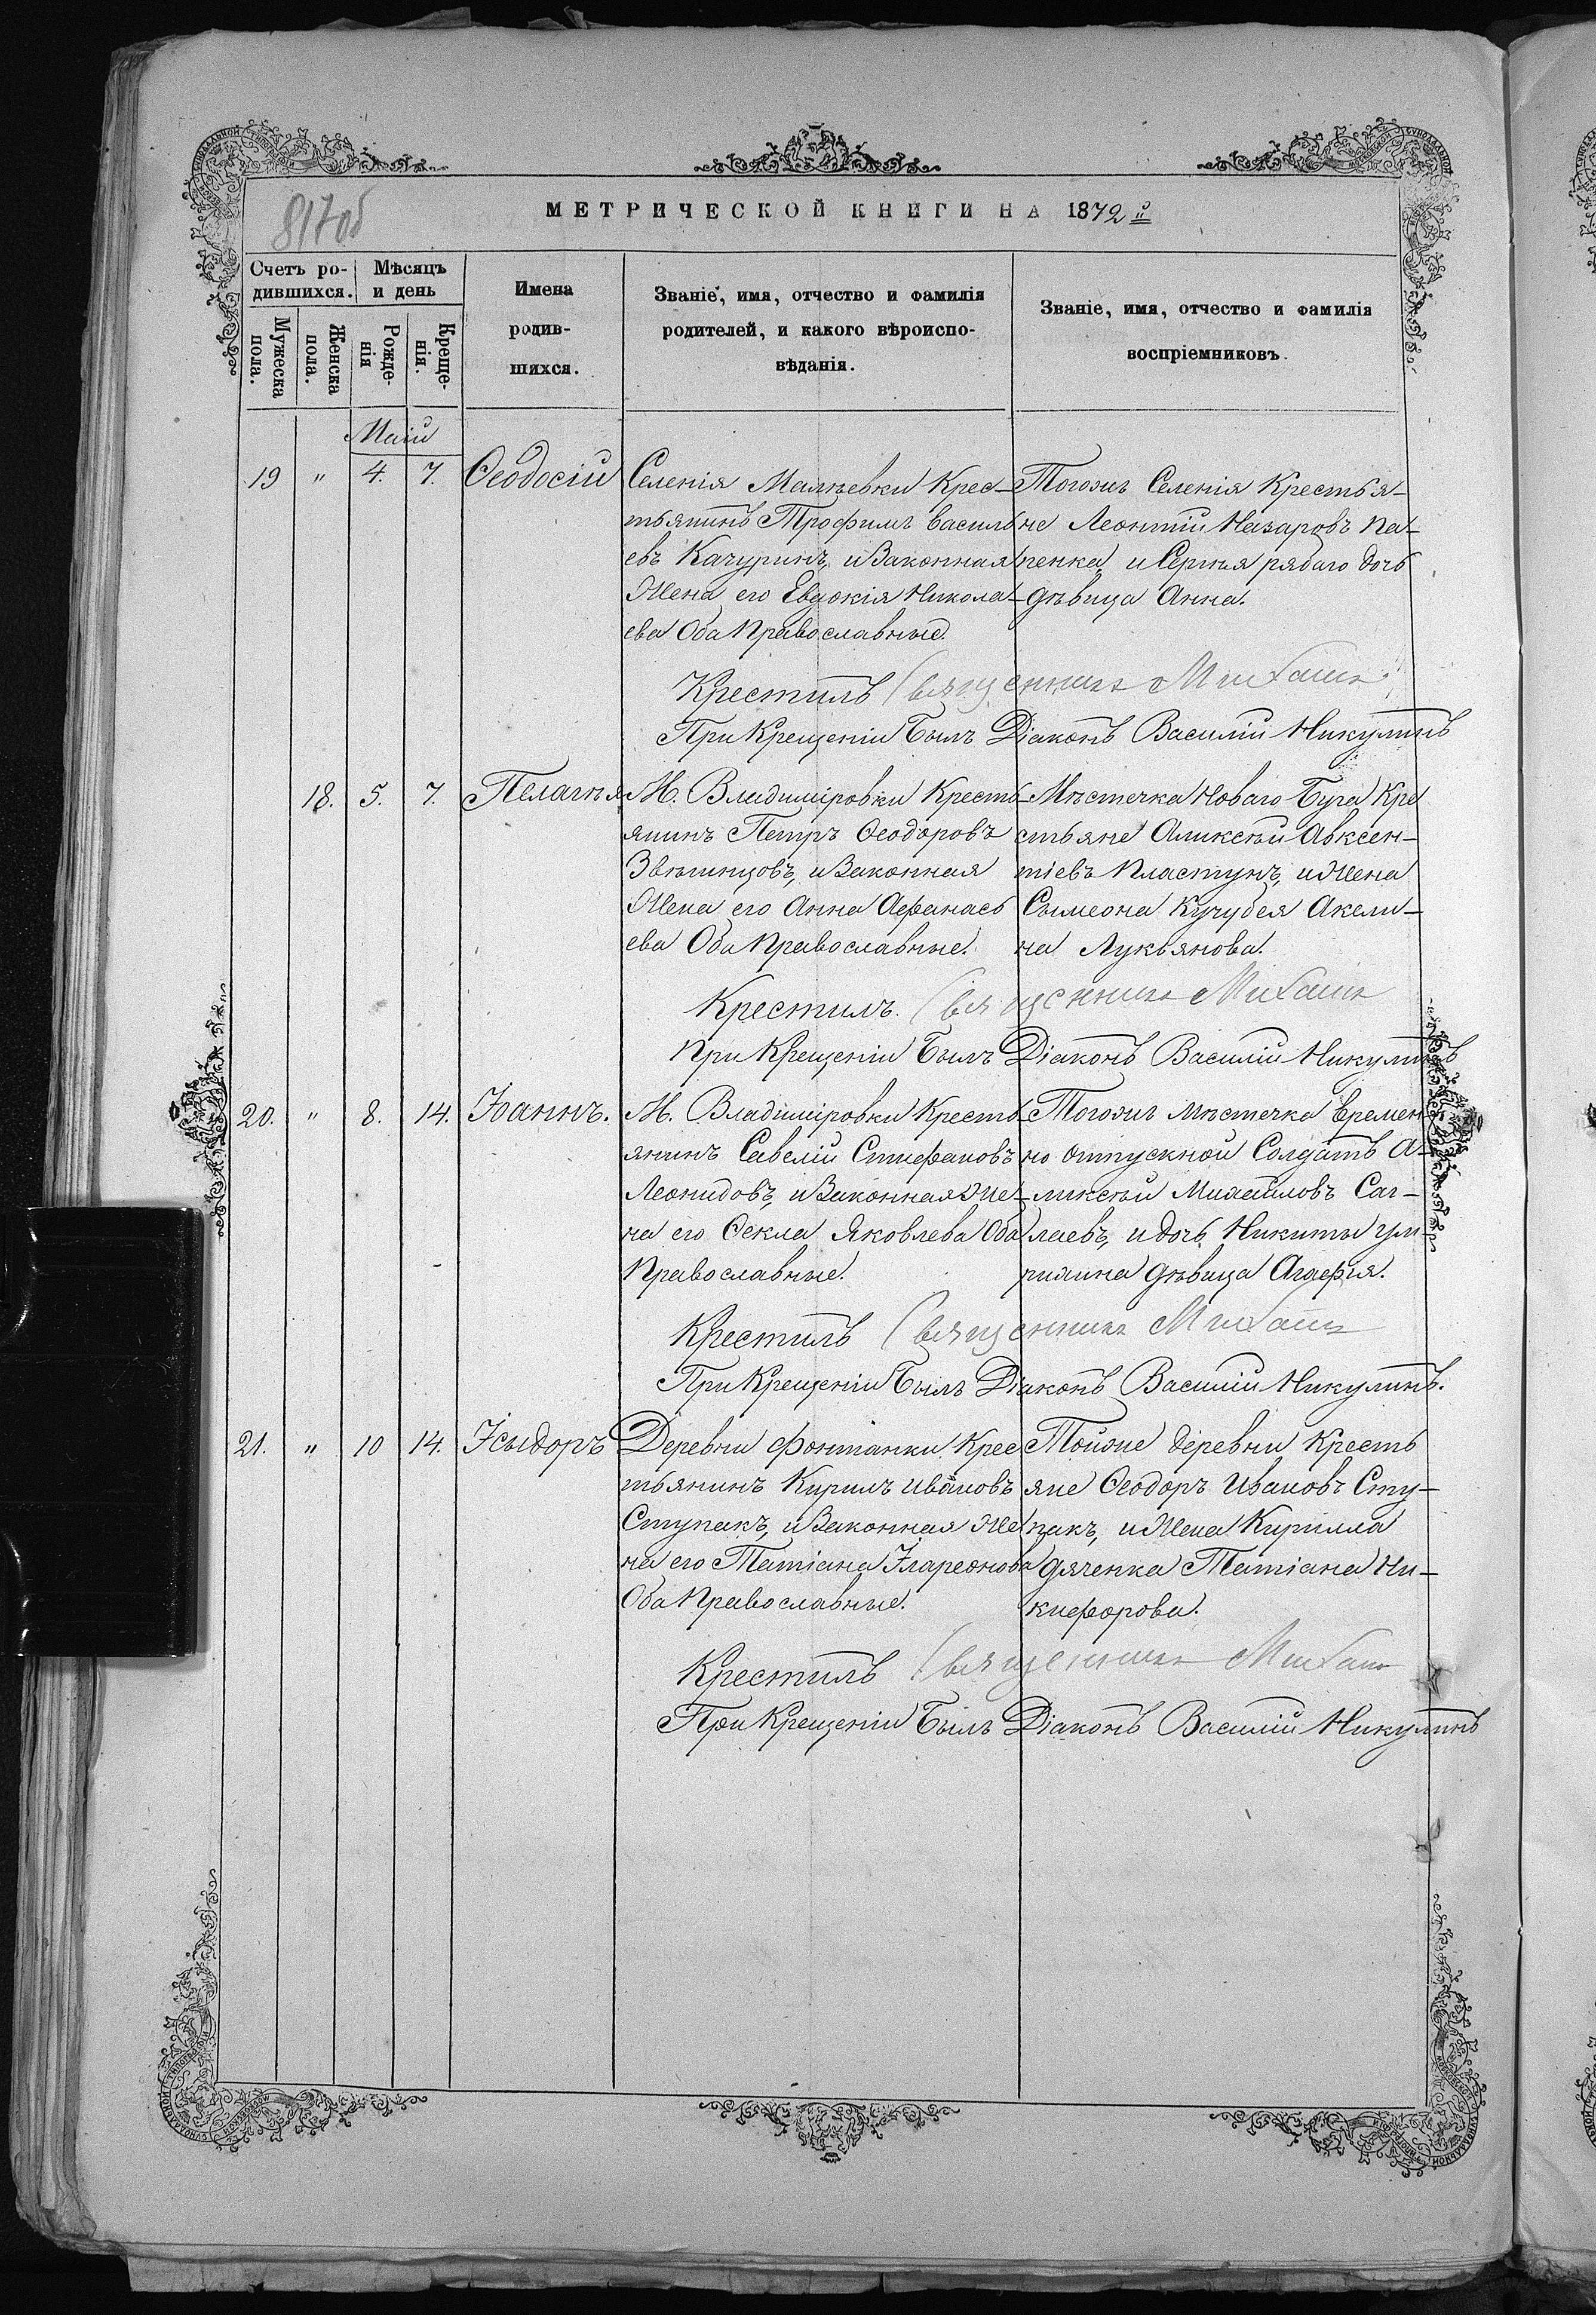 817об
МЕТРИЧЕСКОЙ КНИГИ НА 1872й
Счетъ ро-
дившихся.
Мѣсяцъ
и день
Мужеска
пола.
Женска
пола.
Рожде-
нія
Креще-
нія.
Имена
родив-
шихся.
Званіе, имя, отчество и фамилія
родителей, и какого вѣроиспо-
вѣданія.
Званіе, имя, отчество и фамилія
воспріемниковъ.
Маій
19 " 4. 7. Ѳеодосій
Селенія Малѣевки Крес-
тьянинъ Трофимъ Василь
евъ Качуринъ, и Законная
Жена его Евдокія Никола-
ева Оба Православные.
Тогожъ Селенія Крестья-
не Леонтій Назаровъ Па-
пенка, и Сергѣя рябаго дочь
дѣвица Анна.
Крестилъ Священникъ Михаилъ
При Крещеніи Былъ Діаконъ Василій Никулинъ
18. 5. 7. Пелагѣя
М. Владиміровки Кресть-
янинъ Петръ Ѳеодоровъ
Звѣгинцовъ, и Законная
Жена его Анна Аѳанась
ева Оба Православные.
Мѣстечка Новаго Буга Кре
стьяне Аликсѣй Авксен-
тіевъ Пластунъ, и Жена
Сымеона Кучубея Акели-
на Лукьянова.
Крестилъ. Священникъ Михаилъ
При Крещеніи Былъ Діаконъ Василій Никулинъ
20. " 8. 14. Іоаннъ.
М. Владиміровки Кресть-
янинъ Савелій Стиефановъ
Леонидовъ, и Законная Же-
на его Ѳекла Яковлева Оба
Православные.
Тогожъ мѣстечка времен
но отпускной Солдатъ А-
ликсѣй Михайловъ Саг-
лаевъ, и дочь Никиты
дѣвица Агафія.
Крестилъ Священникъ Михаилъ
При Крещеніи Былъ Діаконъ Василій Никулинъ.
21. " 10 14. Ісыдоръ
Деревни Фонтанки Крес
тьянинъ Кирилъ Ивановъ
Ступакъ, и Законная Же
на его Татіана Ілареонова
Оба Православные.
Тойже деревни Кресть
яне Ѳеодоръ Ивановъ Сту-
пакъ, и Жена Кирилла
Дяченка Татіана Ни-
кифорова.
Крестилъ Священникъ Михаилъ
При Крещеніи Былъ Діаконъ Василій Никулинъ